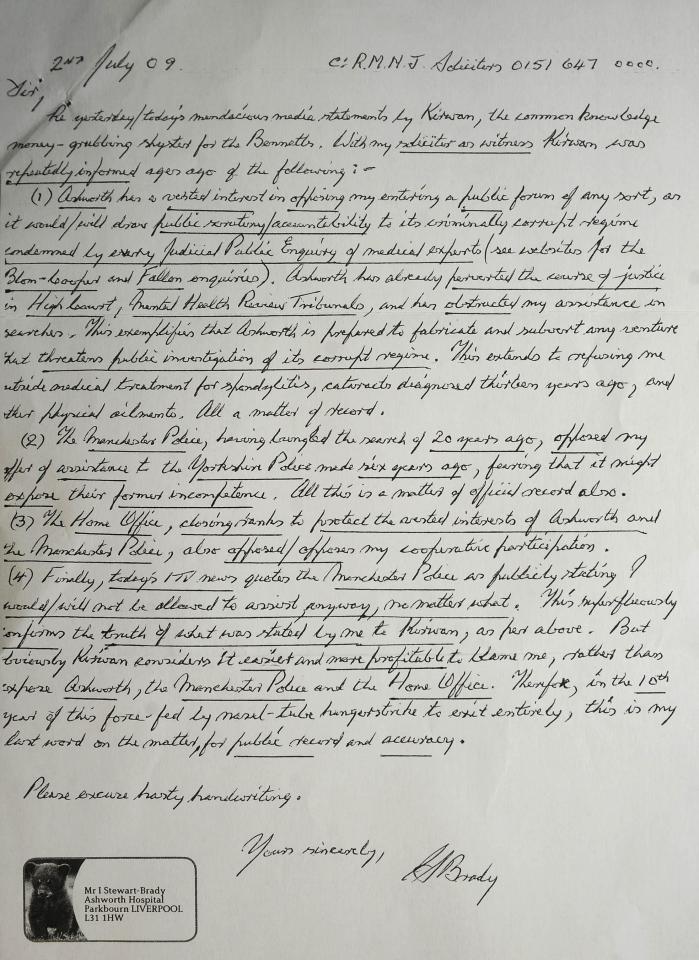 2ND July 09. C: R.M.N.J. Solicitors 0151 647 0000.
Sir,
Re yesterday/today's mendacious media statements by Kirwan, the common knowledge
money-grubbing shyster for the Bennetts. With my solicitor as witness Kirwan was
repeatedly informed ages ago of the following:-
(1) Ashworth has a vested interest in opposing my entering a public forum of any sort, as
it would/will draw public scrutiny/accountability to its criminally corrupt regime
condemned by every Judicial Public Enquiry of medical experts (see websites for the
Blom-Cooper and Fallon enquiries). Ashworth has already perverted the course of justice
in High Court, Mental Health Review Tribunals, and has obstructed my assistance in
searches. This exemplifies that Ashworth is prepared to fabricate and subvert any venture
that threatens public investigation of its corrupt regime. This extends to refusing me
utside medical treatment for spondylitis, cataracts diagnosed thirteen years ago, and
ther physical ailments. All a matter of record.
(2) The Manchester Police, having bungled the search of 20 years ago, opposed my
ffer of assistance to the Yorkshire Police made six years ago, fearing that it might
expose their former incompetence. All this is a matter of official record also.
(3) The Home Office, closing ranks to protect the vested interests of Ashworth and
the Manchester Police, also opposed/opposes my cooperative participation.
(4) Finally, today's ITV news quotes the Manchester Police as publicly stating I
would/will not be allowed to assist anyway, no matter what. This superfluously
onfirms the truth of what was stated by me to Kirwan, as per above. But
bviously Kirwan considers it easier and more profitable to blame me, rather than
expose Ashworth, the Manchester Police and the Home Office. Therefore, in the 10th
year of this force-fed by nasal-tube hungerstrike to exit entirely, this is my
last word on the matter, for public record and accuracy.
Please excuse hasty handwriting.
Yours sincerely,
I S Brady
Mr I Stewart-Brady
Ashworth Hospital
Parkbourn LIVERPOOL
L31 1HW